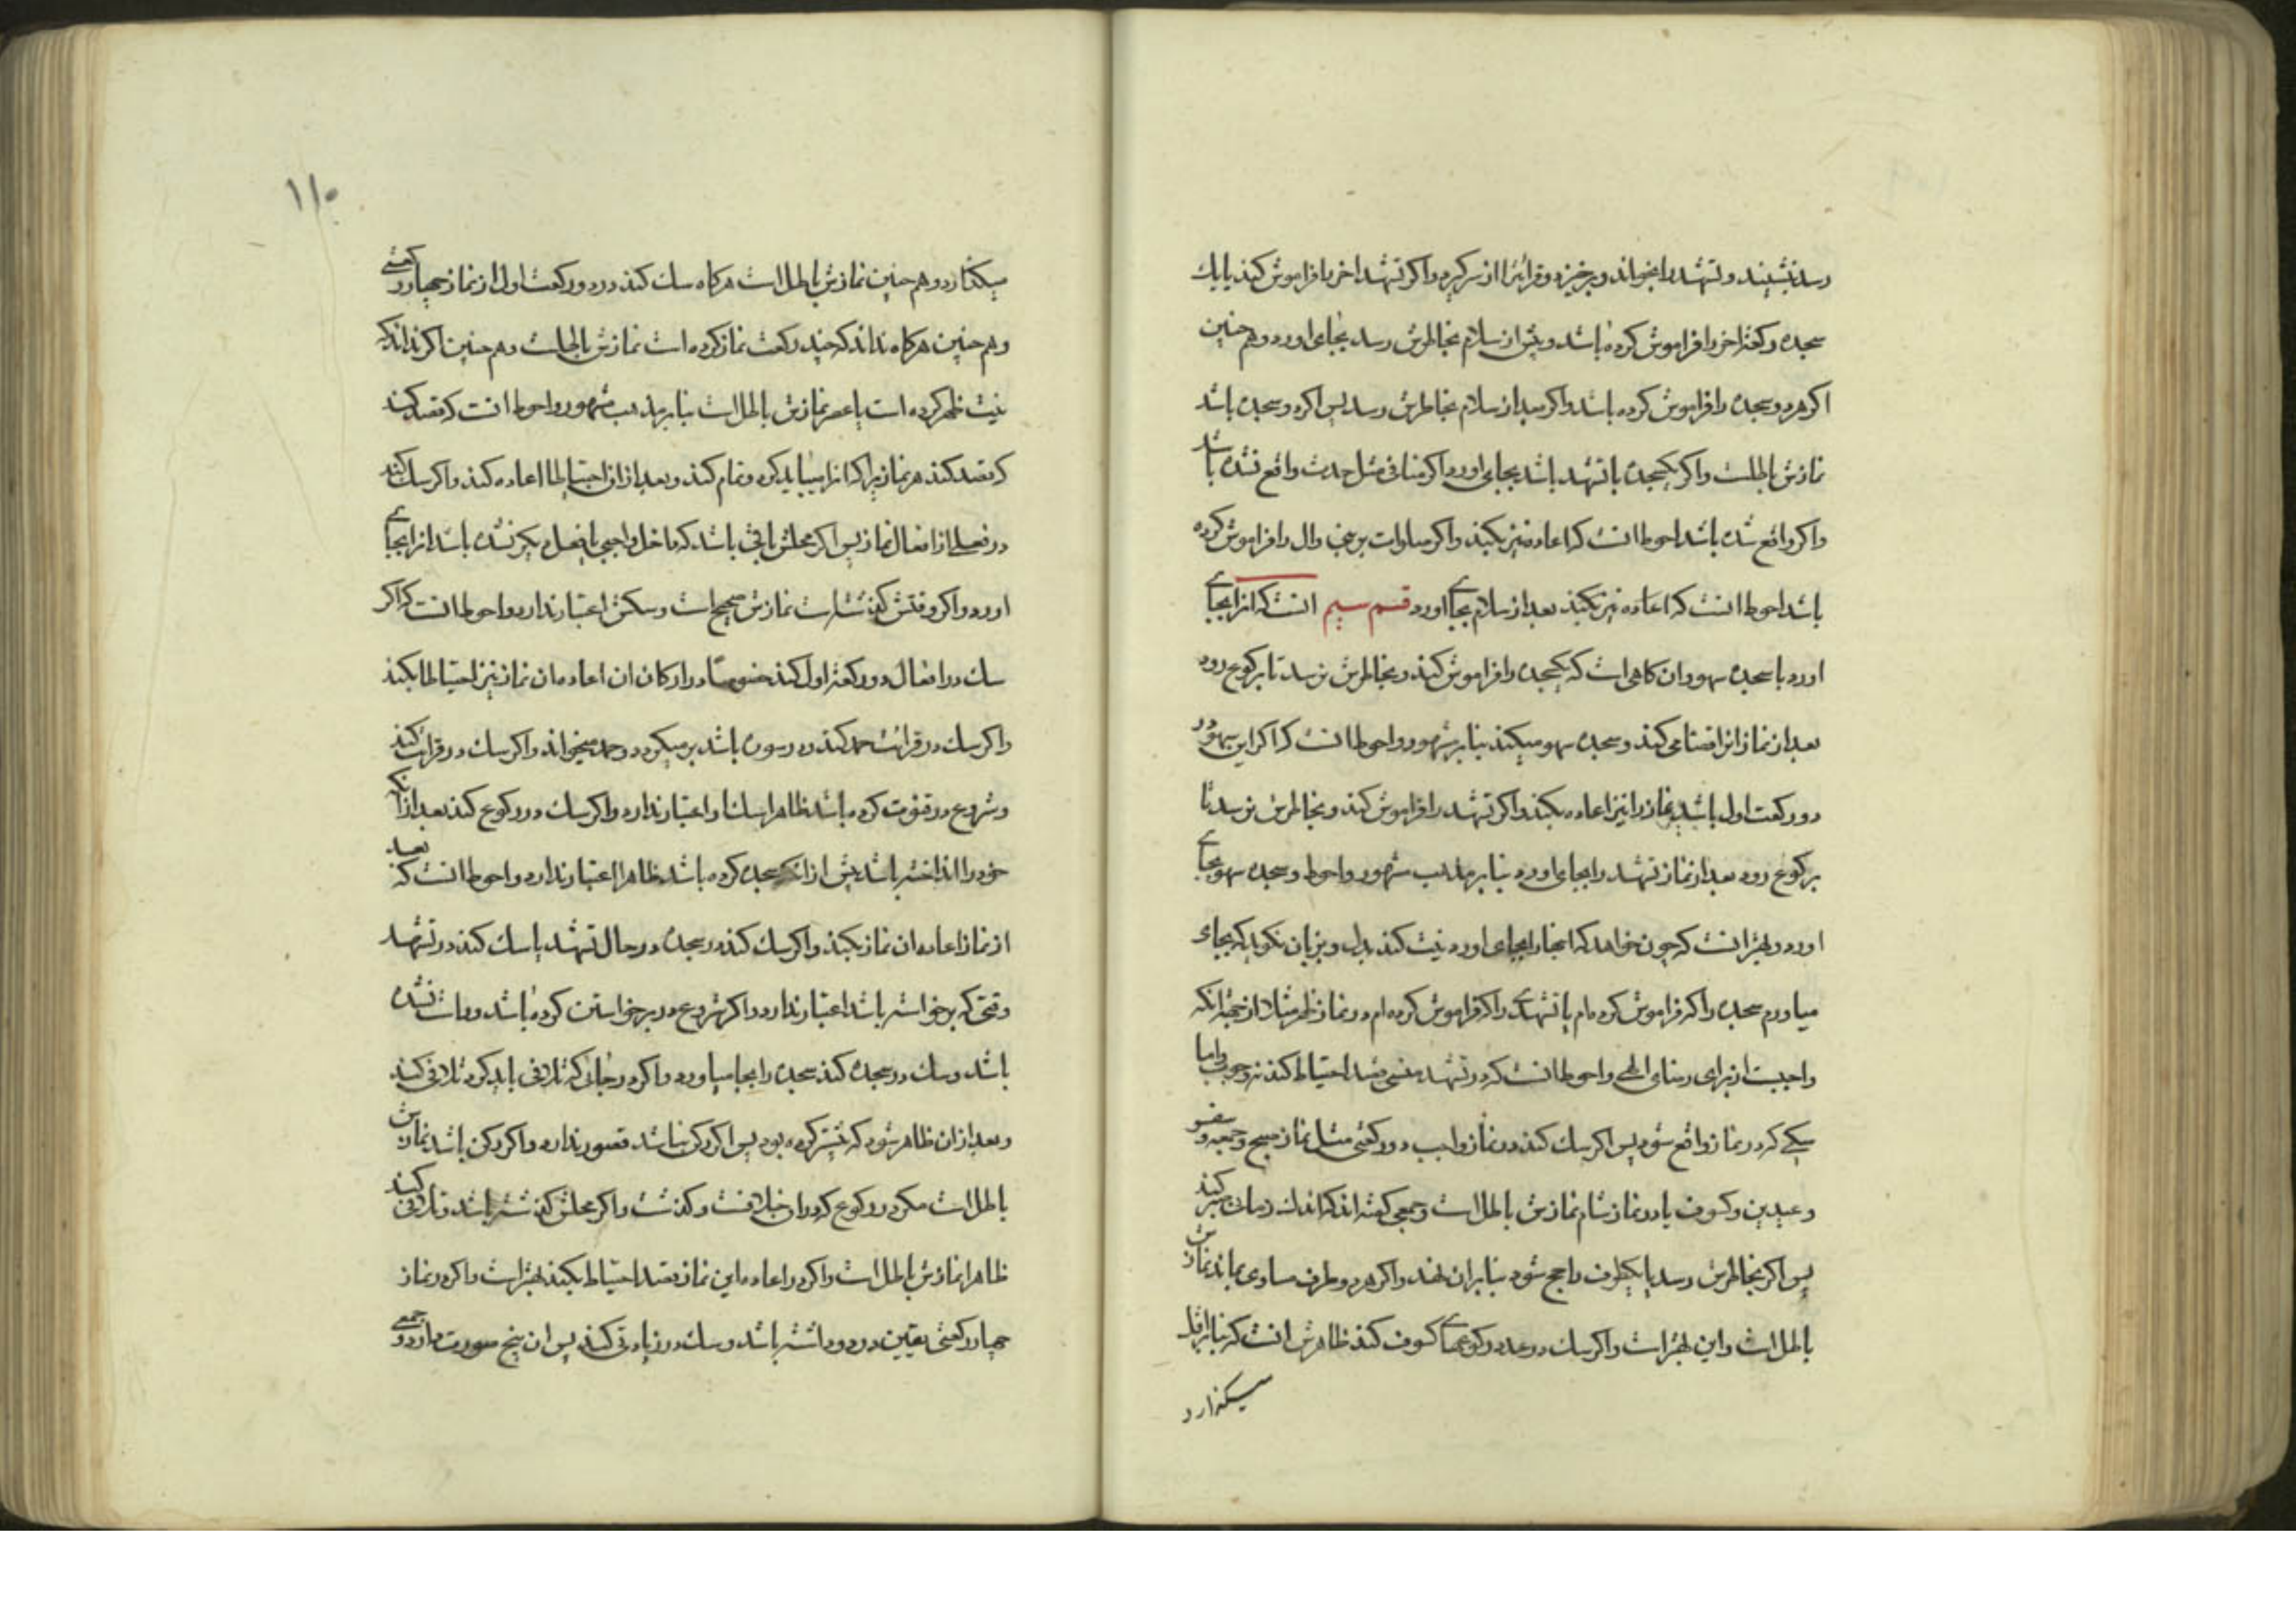 رسد بنشیند و تشهد را بخواند و برخیزد و قرائترا از سر گیرد و اگر تشهد اخر را فراموش کند یا یک
سجده رکعت اخر را فراموش کرده باشد و پیش از سلام بخاطرش رسد بجای اورد و هم چنین
اگر هر دو سجده را فراموش کرده باشد و اگر بعد از سلام بخاطرش رسد پس اگر دو سجده باشد
نمازش باطلست و اگر یکسجده یا تشهد باشد بجای اورد اگر منافی مثل حدث واقع نشده باشد
و اگر واقع شده باشد احوط انست که اعاده نیز بکند و اگر صلوات بر نبی وال را فراموش کرده
باشد احوط انست که اعاده نیز بکند بعد از سلام بجای اورد قسم سیم انست که انرا بجای
اورد با سجده سهو و ان گاهی است که یکسجده را فراموش کند و بخاطرش نرسد تا برکوع رود
بعد از نماز انرا قضا می کند و سجده سهو میکند بنابر مشهور و احوط انست که اگر این سهو در
دو رکعت اول باشد نماز را نیز اعاده بکند و اگر تشهد را فراموش کند و بخاطرش نرسد تا
برکوع رود بعد از نماز تشهد را بجای اورد بنابر مذهب مشهور و احوط و سجده سهو بجای
اورد و بهتر انست که چون خواهد که اینها را بجای اورد نیت کند بدل و بزبان نگوید که بجای
میاورم سجده را که فراموش کرده ام یا تشهدی را که فراموش کرده ام در نماز ظهر مثلا از جهة انکه
واجبست از برای رضای الهی و احوط انست که در تشهد منسی قصد احتیاط کند نه وجوب و اما
شکی که در نماز واقع شود پس اگر شک کند در نماز واجب دو رکعتی مثل نماز صبح و جمعه و سفر
و عیدین و کسوف یا در نماز شام نمازش باطل است و جمعی گفته اند که اندک زمان صبر کند
پس اگر بخاطرش رسد یا یکطرف راجح شود بنابران نهد و اگر هر دو طرف مساوی بماند نمازش
باطل است و این بهتر است و اگر شک در عدد رکوعهای کسوف کند ظاهرش انست که بنا بر اقل
میگذارد
۱۱۰
میگذارد و هم چنین نمازش باطل است هر گاه شک کند در دو رکعت اول از نماز چهار رکعتی
و هم چنین هر گاه نداند که چند رکعت نماز کرده است نمازش باطلست و هم چنین اگر نداند که
نیت ظهر کرده است یا عصر نمازش باطل است بنابر مذهب مشهور و احوط انست که قصد کند
که قصد کند هر نمازیرا که انرا میباید کرد و تمام کند و بعد از ان احتیاطا اعاده کند و اگر شک کند
در فعلی از افعال نماز پس اگر محلش باقی باشد که داخل واجبی یا فعل دیگر نشده باشد انرا بجای
اورد و اگر وقتش گذشته است نمازش صحیح است و شکش اعتبار ندارد و احوط انست که اگر
شک در افعال دو رکعت اول کند خصوصا در ارکان ان اعاده ان نماز نیز احتیاطا بکند
و اگر شک در قرائت حمد کند در سوره باشد بر میگردد و حمد میخواند و اگر شک در قرائت کند
و شروع در قنوت کرده باشد ظاهرا شک او اعتبار ندارد و اگر شک در رکوع کند بعد از انکه
خود را انداخته باشد پیش از انکه سجده کرده باشد ظاهرا اعتبار ندارد و احوط انست که بعد
از نماز اعاده ان نماز بکند و اگر شک کند در سجده در حال تشهد یا شک کند در تشهد
وقتی که برخواسته باشد اعتبار ندارد و اگر شروع در برخواستن کرده باشد و راست نشده
باشد و شک در سجده کند سجده را بجا میاورد و اگر در جائی که تلافی باید کرد تلافی کند
و بعد از ان ظاهر شود که پیشتر کرده بود پس اگر رکن نباشد قصور ندارد و اگر رکن باشد نمازش
باطل است مگر در رکوع که در ان خلافست و گذشت و اگر محلش گذشته باشد و تلافی کند
ظاهرا نمازش باطل است و اگر در اعاده این نماز قصد احتیاط بکند بهتر است و اگر در نماز
چهار رکعتی یقین در دو داشته باشد و شک در زیادتی کند پس ان پنج صورت دارد و جمعی